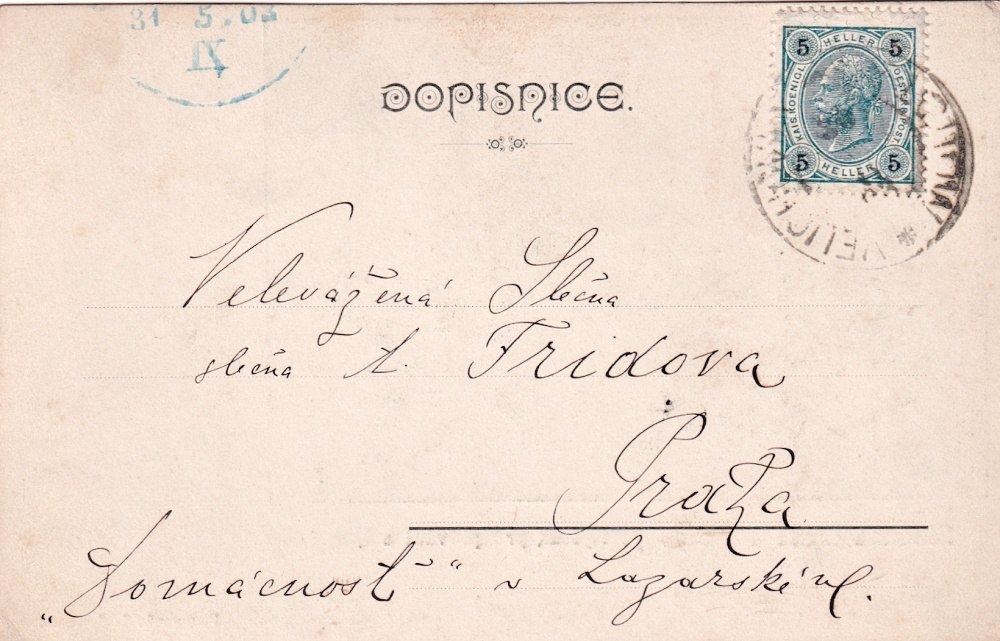 31 5.03
IX
DOPISNICE.
5 HELLER 5
KAIS. KOENIGL. OESTERR. POST.
5 HELLER 5
Velevážená Slečna
slečna A. Fridova
Praha
„Domácnost“ v Lazarské ul.